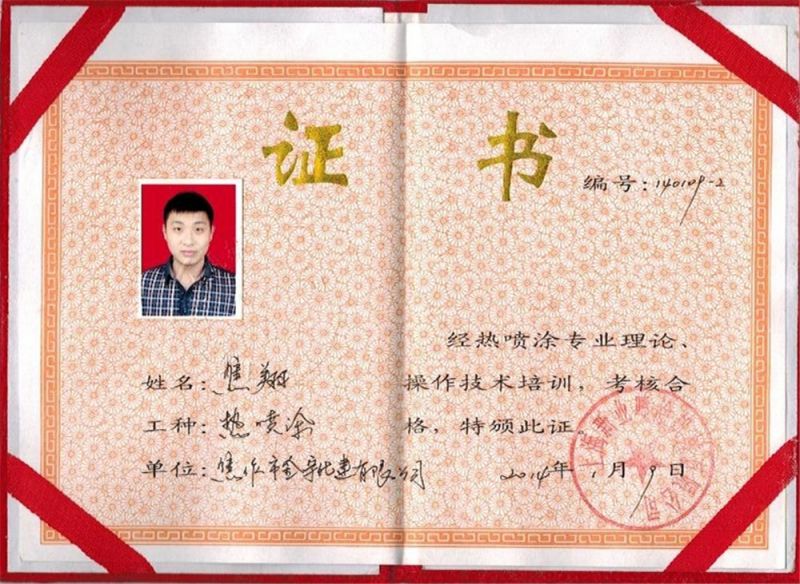 证书
编号：140109-2
姓名：焦翔
工种：热喷涂
单位：焦作市金
经热喷涂专业理论、
操作技术培训，考核合
格，特颁此证。
2014年1月9日